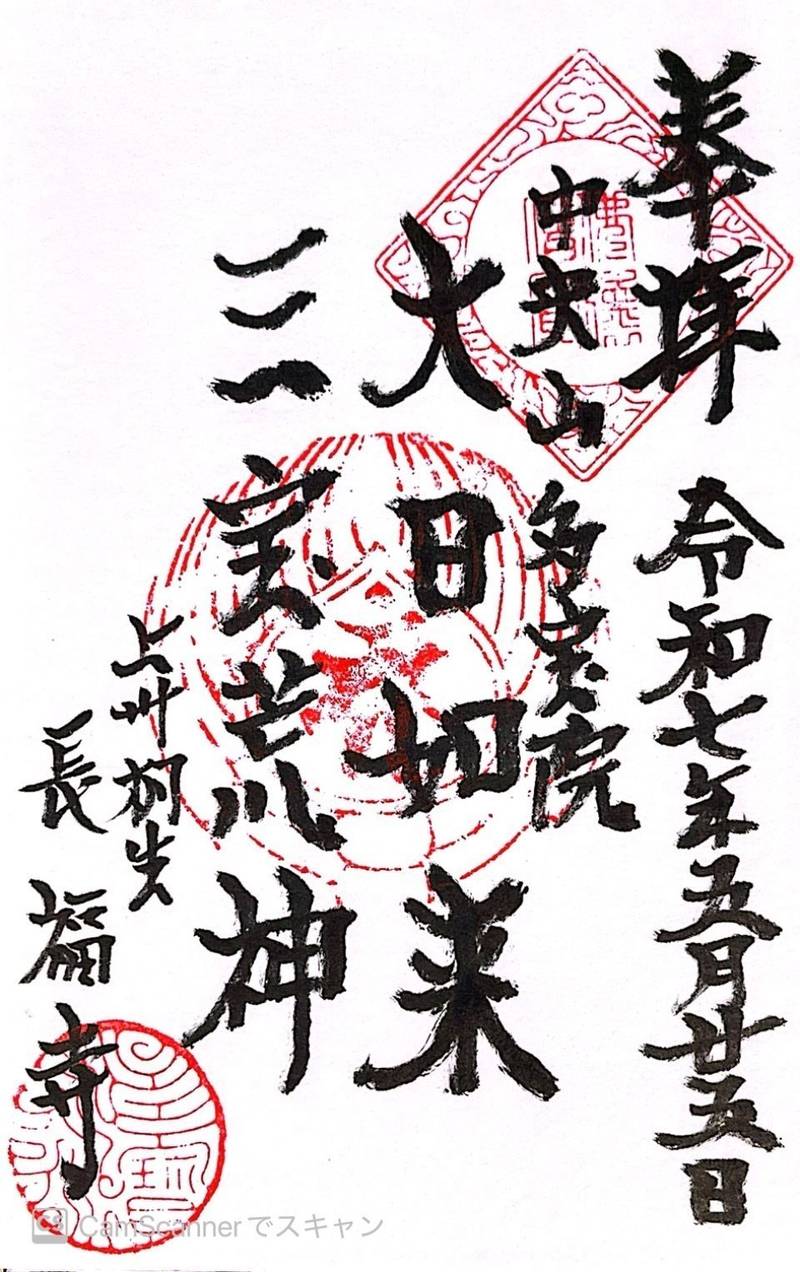 奉拝 令和七年五月廿五日
中央山 多宝院
大日如来
三宝荒神
上州桐生
長福寺
CamScannerでスキャン